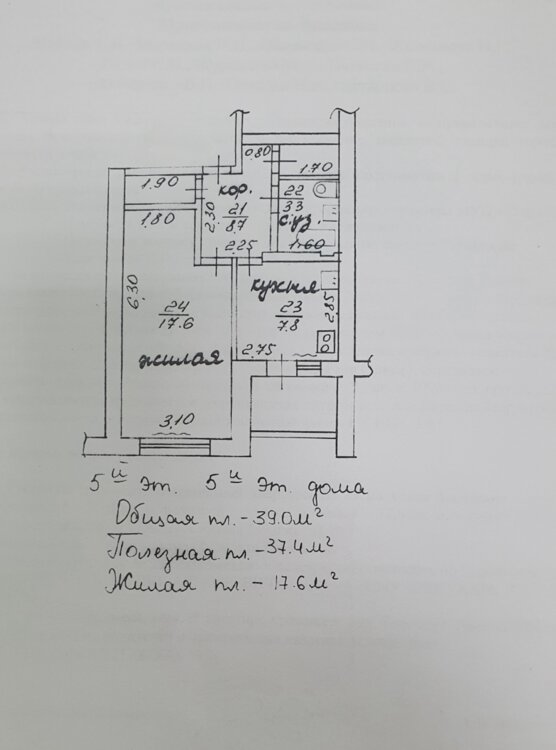 0.80
1.70
1.90
кор.
22
3.3
с.уз.
1.80
2.30
21
8.7
1.60
2.25
6.30
кухня
23
7.8
2.85
24
17.6
жилая
2.75
3.10
5й эт. 5й эт. дома
Общая пл. - 39.0 м²
Полезная пл. - 37.4 м²
Жилая пл. - 17.6 м²